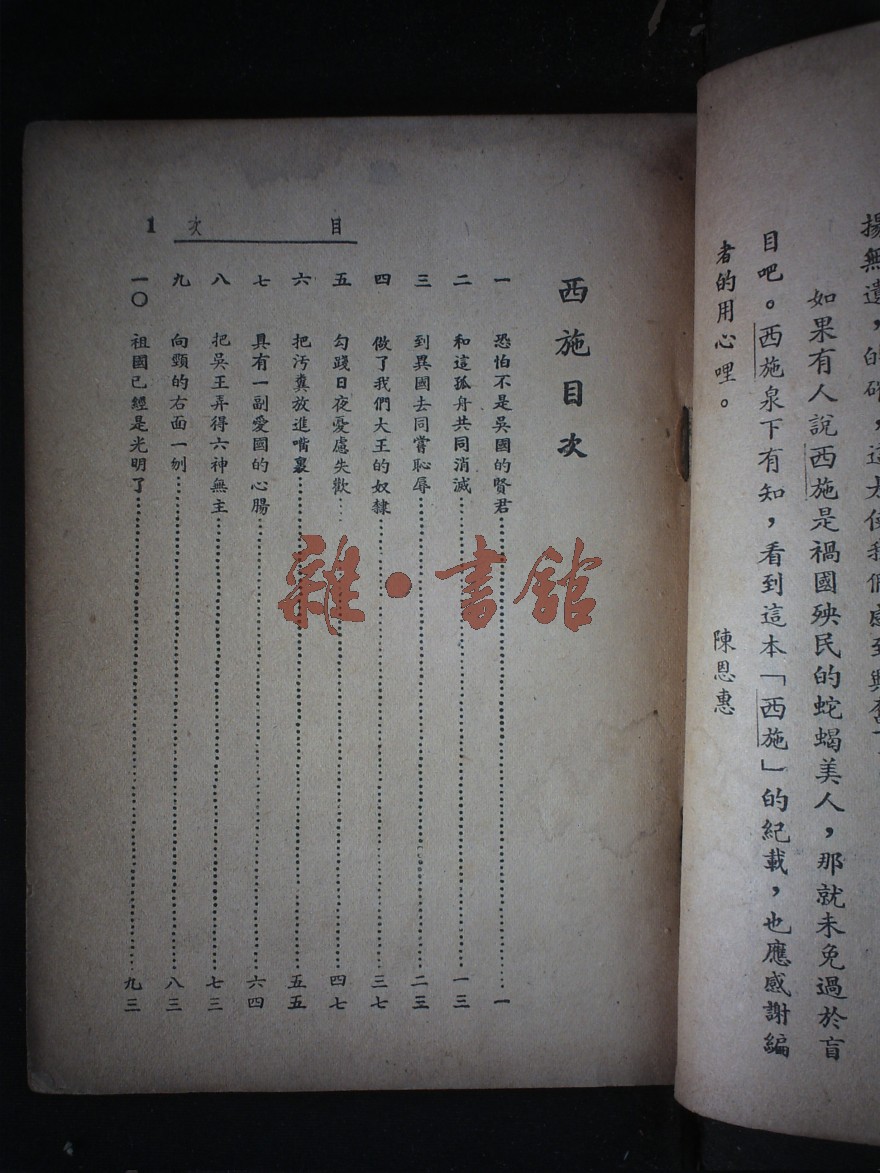 揚無遺，的確，這本使我們感到興奮
如果有人說西施是禍國殃民的蛇蝎美人，那就未免過於盲
目吧。西施泉下有知，看到這本「西施」的紀載，也應感謝編
者的用心哩。
陳恩惠
目次 1
西施目次
一 恐怕不是吳國的賢君 一
二 和這孤舟共同消滅 一三
三 到異國去同嘗恥辱 二三
四 做了我們大王的奴隸 三七
五 勾踐日夜憂慮失歡 四七
六 把污糞放進嘴裏 五五
七 具有一副愛國的心腸 六四
八 把吳王弄得六神無主 七三
九 向頸的右面一刎 八三
一〇 祖國已經是光明了 九三
雜·書館